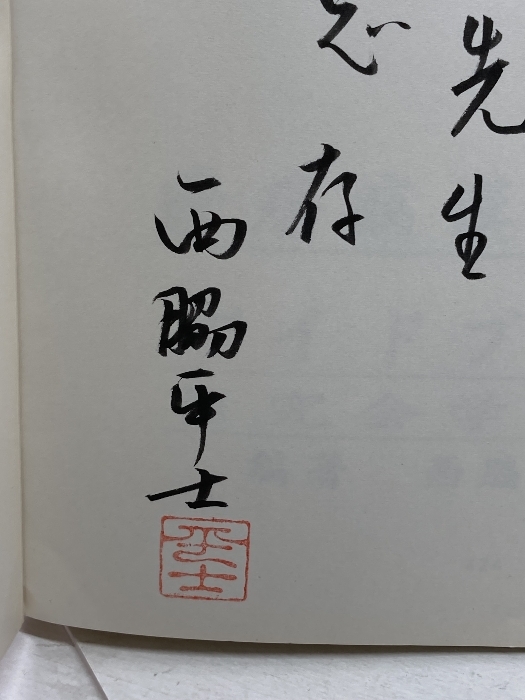 先生
惠存
西脇平士
平士